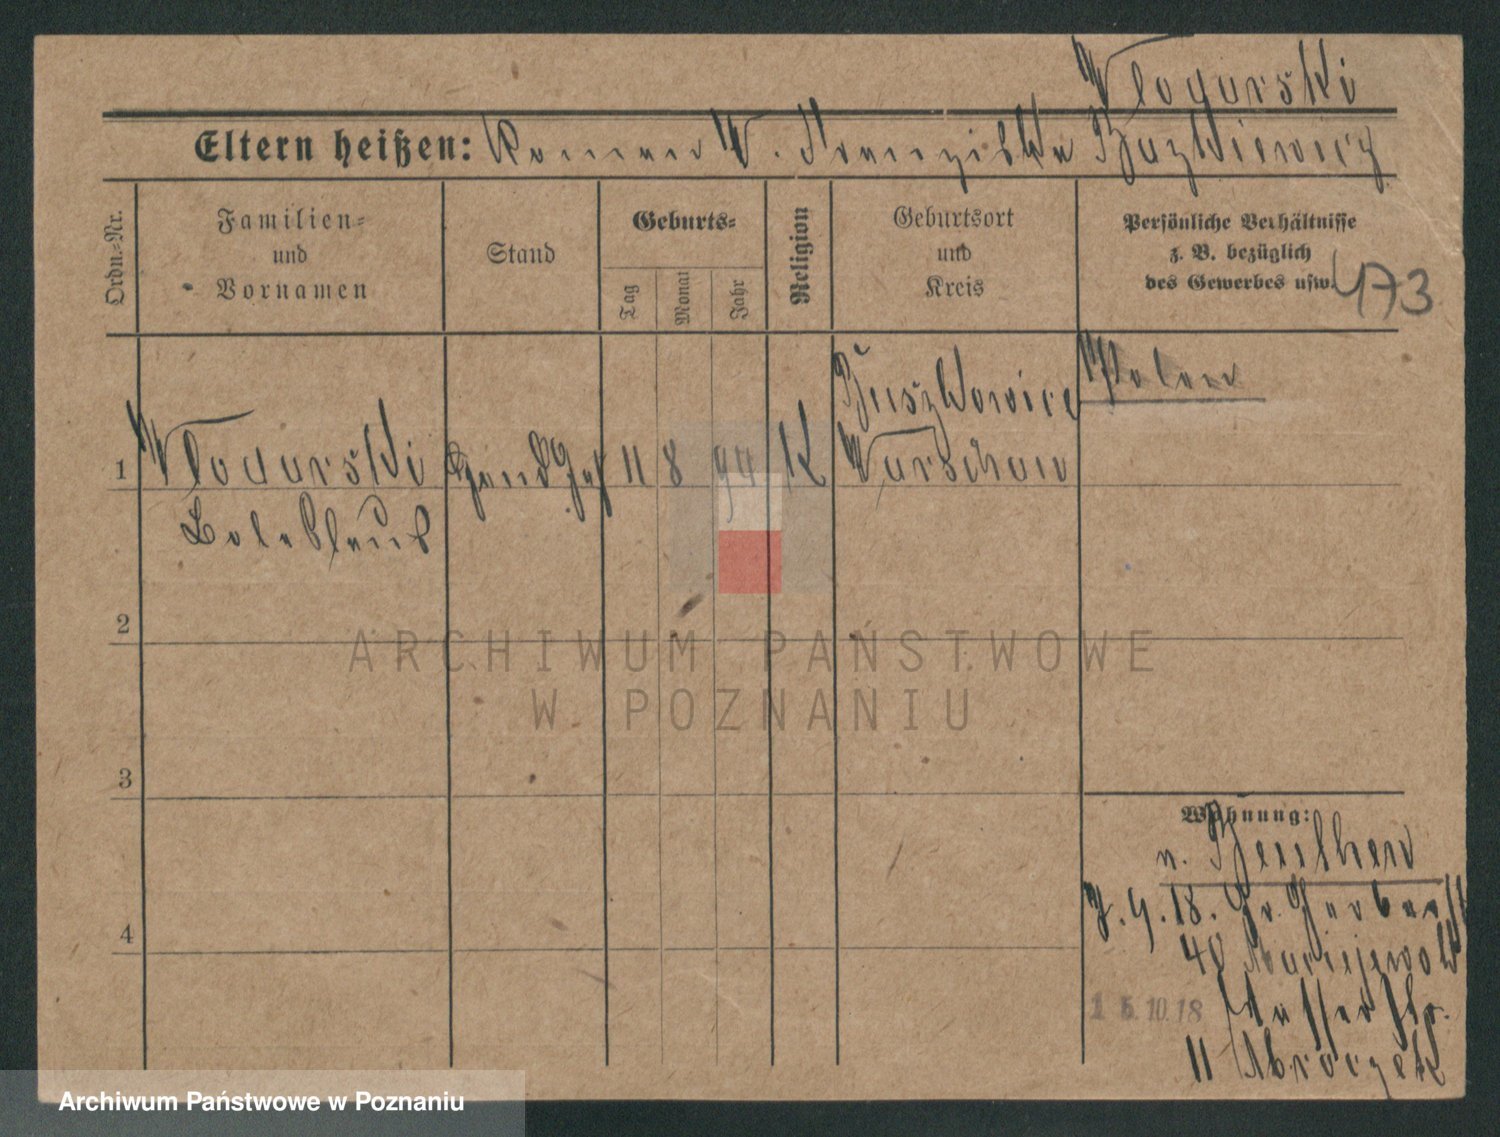 Wlodarski
Eltern heißen: Roman W. Franziska Buzkiewicz
Ordn.-Nr.
Familien- und Vornamen
Stand
Geburts-
Tag
Monat
Jahr
Religion
Geburtsort und Kreis
Persönliche Verhältnisse
z. B. bezüglich
des Gewerbes usw.
473
1
Wlodarski
Boleslaus
11 8 94 K
Warschau
Polen
2
3
4
Wohnung:
n. Beuthen
7.9.18. Gr. Gerberst
40
15.10.18 Wasserstr.
11
ARCHIWUM PAŃSTWOWE
W POZNANIU
Archiwum Państwowe w Poznaniu